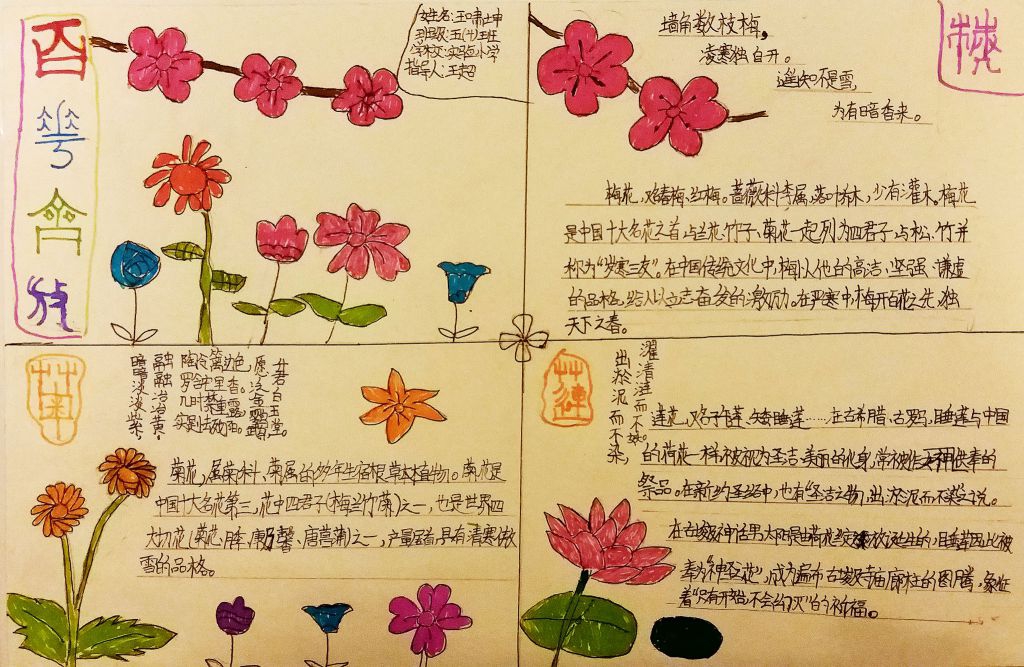 百
花
齐
放
班级:五(十)班
学校:实验小学
指导人:王超
墙角数枝梅,
凌寒独自开。
遥知不是雪,
为有暗香来。
梅花,又名春梅、红梅。蔷薇科李属,落叶乔木,少有灌木。梅花
是中国十大名花之首,与兰花、竹子、菊花一起列为四君子,与松、竹并
称为“岁寒三友”。在中国传统文化中,梅以他的高洁、坚强、谦虚
的品格,给人以立志奋发的激励。在严寒中,梅开百花之先,独
天下之春。
菊
暗暗淡淡紫
融融冶冶黄
陶令篱边色,
罗含宅里香。
几时禁重露,
实是怯残阳。
愿泛金鹦鹉,
升君白玉堂。
菊花,属菊科、菊属的多年生宿根草本植物。菊花是
中国十大名花第三,花中四君子(梅兰竹菊)之一,也是世界四
大切花(菊花、月季、康乃馨、唐菖蒲)之一,产量居首,具有清寒傲
雪的品格。
莲
出於泥而不染,
濯清涟而不妖。
莲花,又名子午莲、矢车睡莲……在古希腊、古罗马,睡莲与中国
的荷花一样,被视为圣洁、美丽的化身,常被作供奉的
祭品。在新约圣经中,也有“圣洁之物,出於泥而不染”之说。
在古埃及神话里太阳是由荷花绽放诞生的,睡莲因此被
奉为“神圣花”,成为遍布古埃及寺庙廊柱的图腾,象征
着“只有开始,不会幻灭”的祈福。